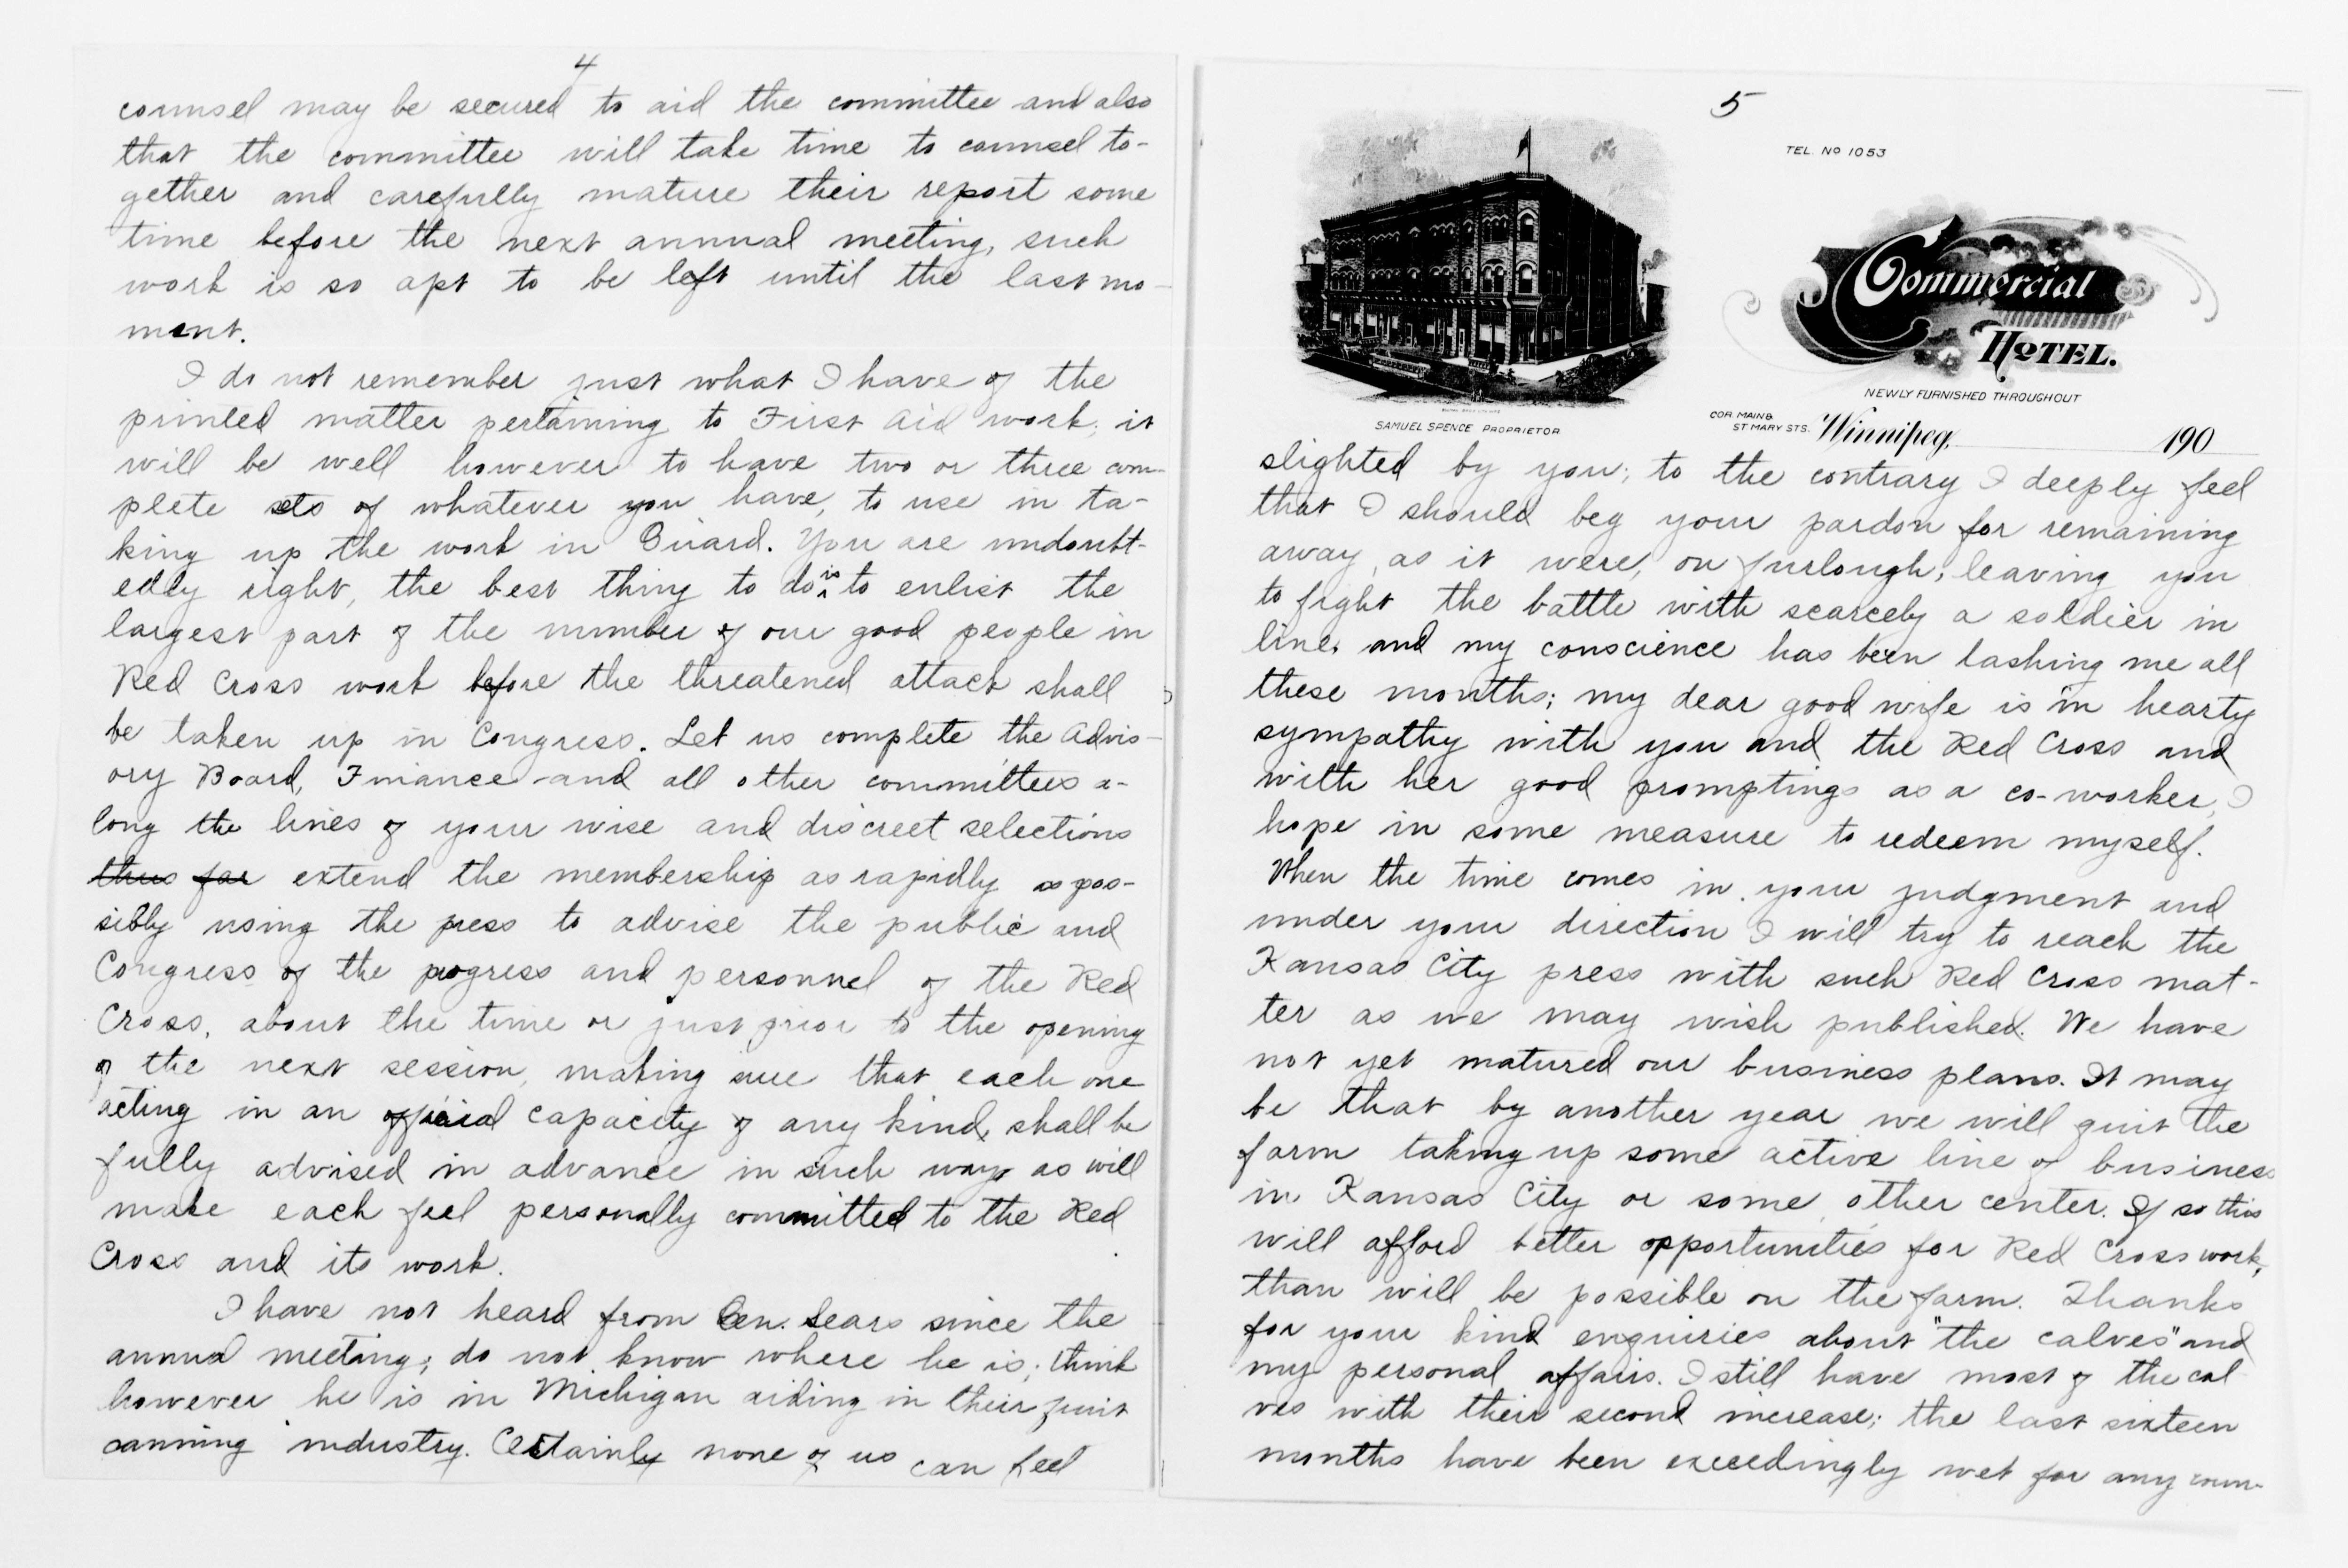 4
counsel may be secured to aid the committee and also
that the committee will take time to counsel to-
gether and carefully mature their report some
time before the next annual meeting, such
work is so apt to be left until the last mo-
ment.
I do not remember just what I have of the
printed matter pertaining to First Aid work; it
will be well however to have two or three com-
plete sets of whatever you have, to use in ta-
king up the work in Girard. You are undoubt-
edly right, the best thing to do is to enlist the
largest part of the number of our good people in
Red Cross work before the threatened attack shall
be taken up in Congress. Let us complete the Advis-
ory Board, Finance and all other committees a-
long the lines of your wise and discreet selections
thus far extend the membership as rapidly as pos-
sibly using the press to advise the public and
Congress of the progress and personnel of the Red
Cross, about the time or just prior to the opening
of the next session, making sure that each one
acting in an official capacity of any kind, shall be
fully advised in advance in such way as will
make each feel personally committed to the Red
Cross and its work.
I have not heard from Gen. Sears since the
annual meeting; do not know where he is; think
however he is in Michigan aiding in their fruit
canning industry. Certainly none of us can feel
5
TEL. No 1053
Commercial
HOTEL.
NEWLY FURNISHED THROUGHOUT
SAMUEL SPENCE PROPRIETOR
COR. MAIN &
ST MARY STS. Winnipeg, 190
slighted by you; to the contrary I deeply feel
that I should beg your pardon for remaining
away, as it were, on furlough; leaving you
to fight the battle with scarcely a soldier in
line, and my conscience has been lashing me all
these months; my dear good wife is in hearty
sympathy with you and the Red Cross and
with her good promptings as a co-worker, I
hope in some measure to redeem myself.
When the time comes in your judgment and
under your direction I will try to reach the
Kansas City press with such Red Cross mat-
ter as we may wish published. We have
not yet matured our business plans. It may
be that by another year we will quit the
farm taking up some active line of business
in Kansas City or some other center. If so this
will afford better opportunities for Red Cross work,
than will be possible on the farm. Thanks
for your kind enquiries about "the calves" and
my personal affairs. I still have most of the cal
ves with their second increase; the last sixteen
months have been exceedingly wet for any coun-